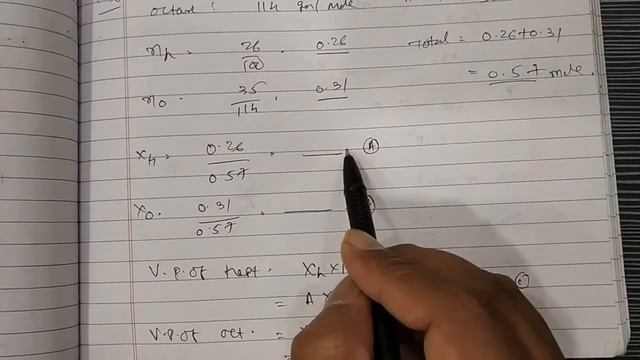 octane : 114 gm/mole
nh 26/100 . 0.26 Total = 0.26+0.31
= 0.57 mole.
no . 35/114 . 0.31
xh . 0.26/0.57 . A
xo . 0.31/0.57 .
V.p. of hept . Xh x
= A x
V.p. of oct . =